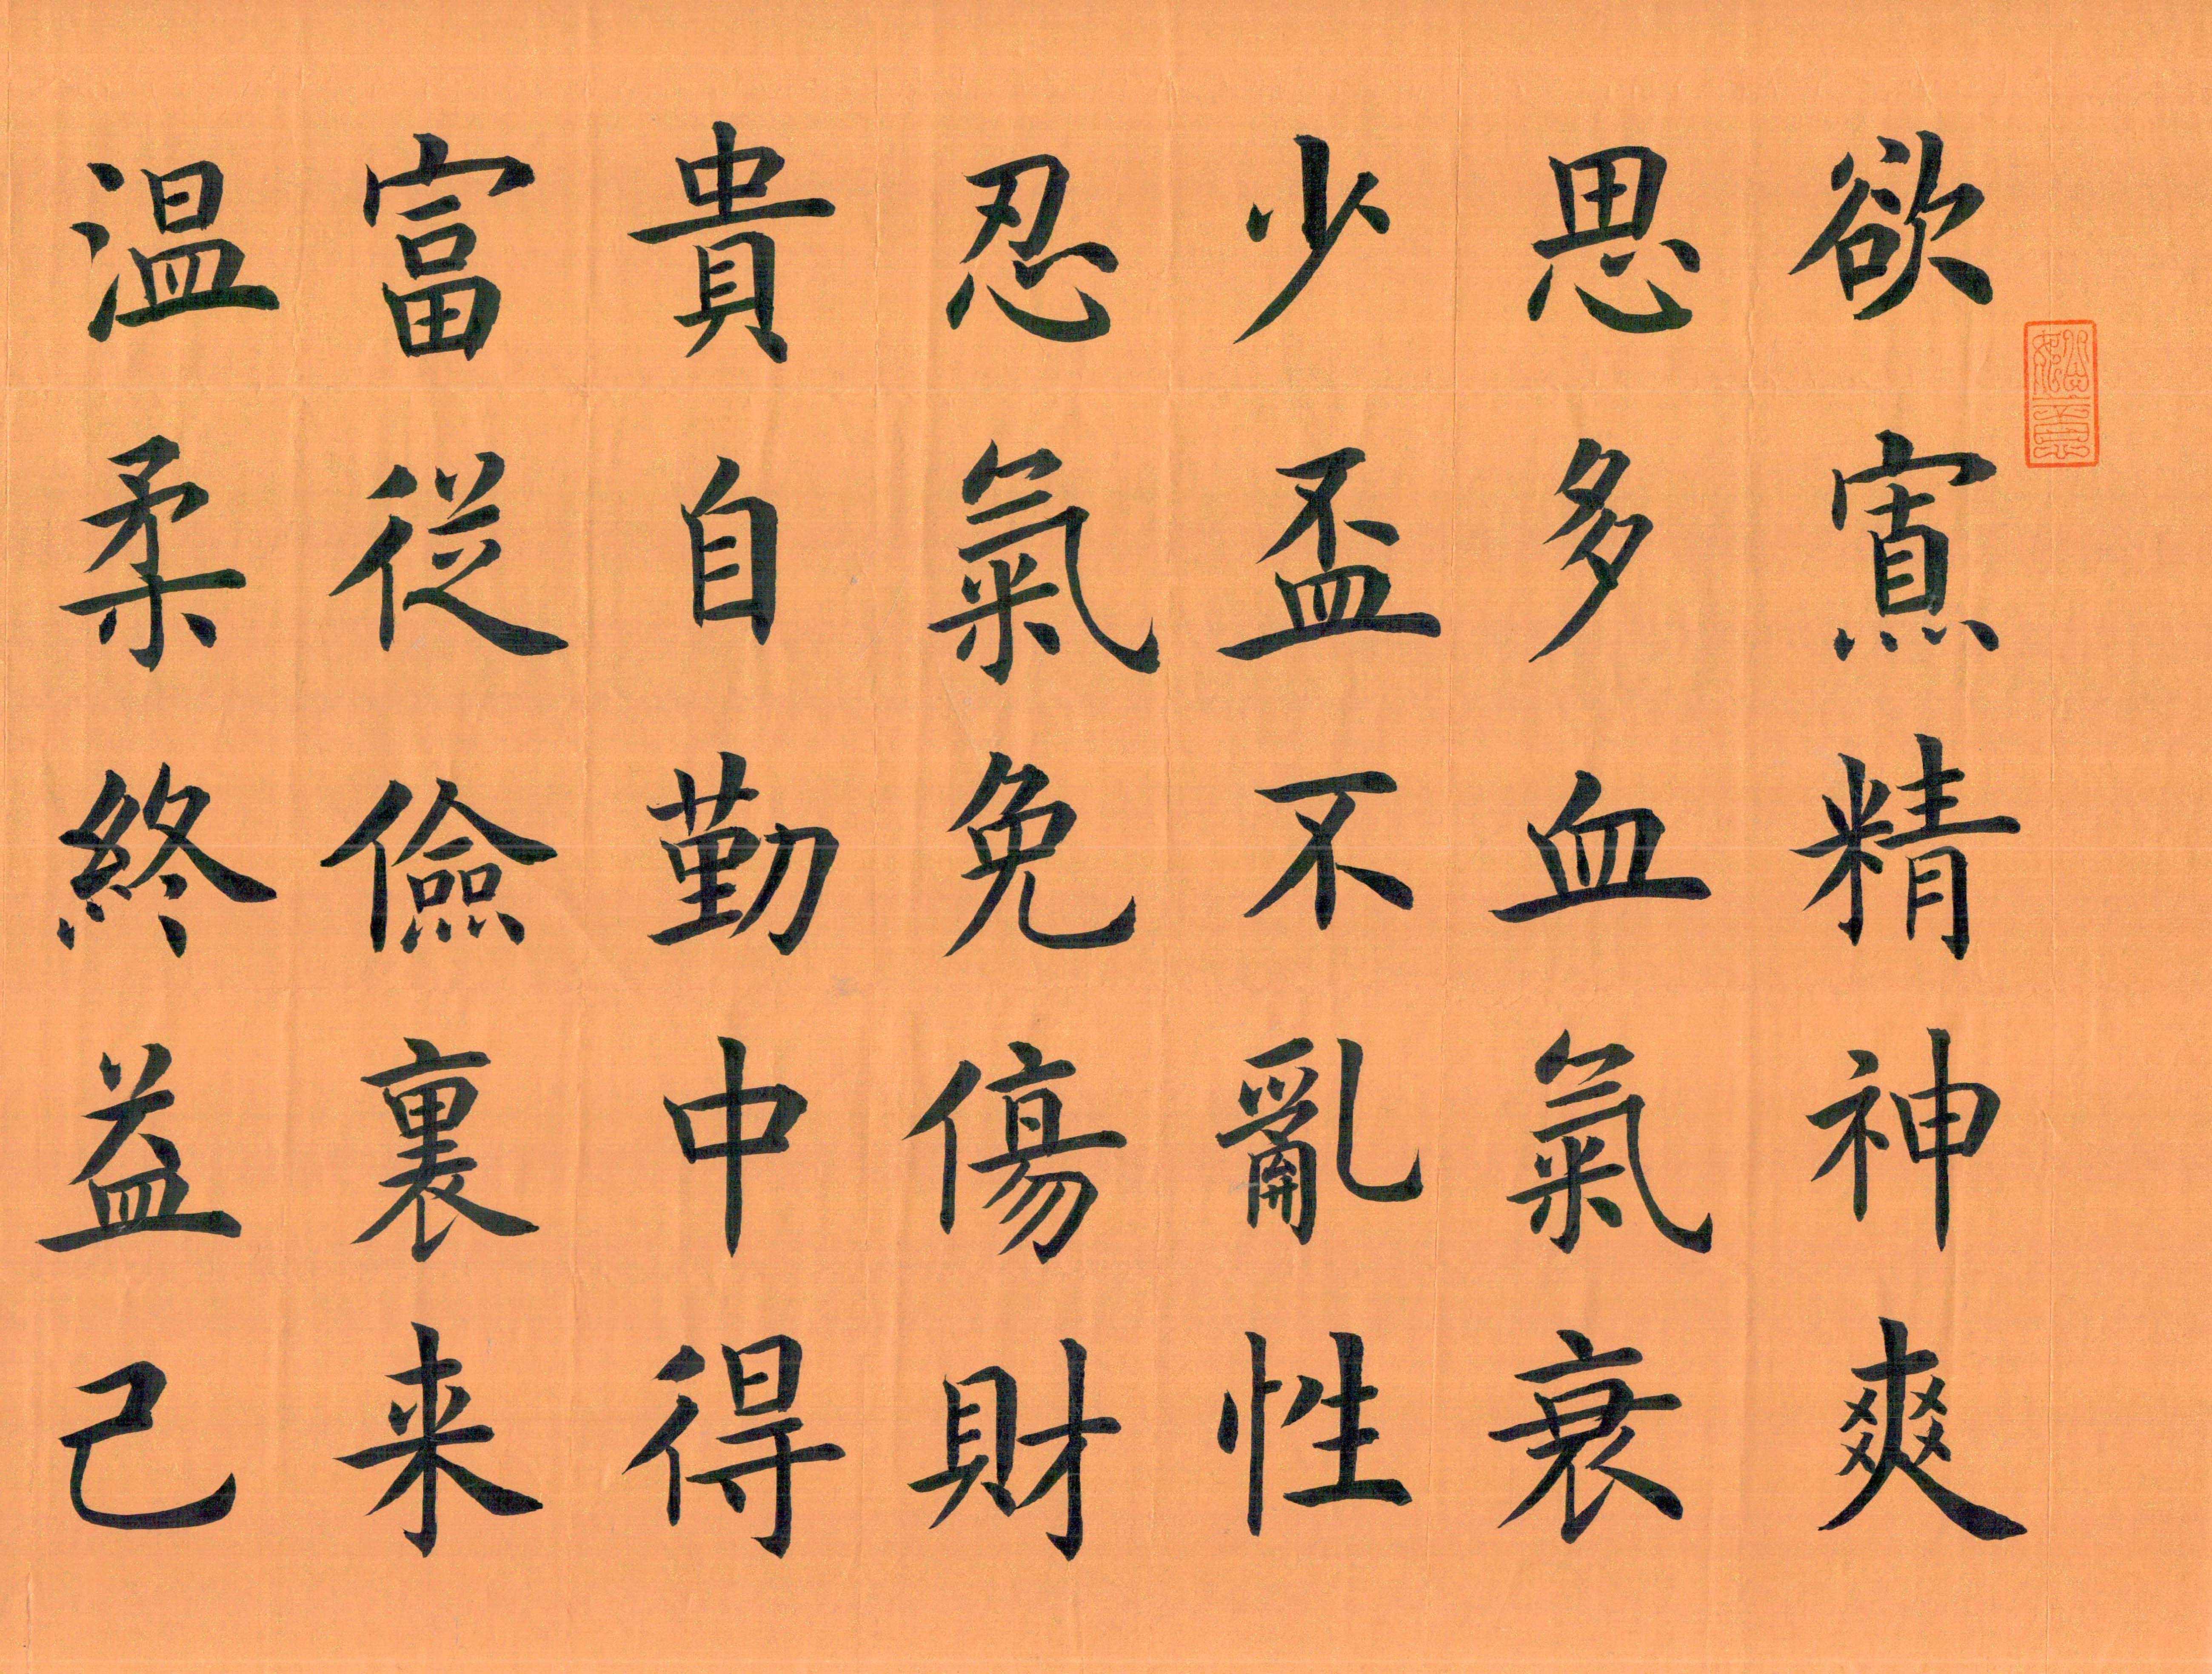 欲寡精神爽
思多血氣衰
少盃不亂性
忍氣免傷財
貴自勤中得
富從儉裏来
温柔終益己